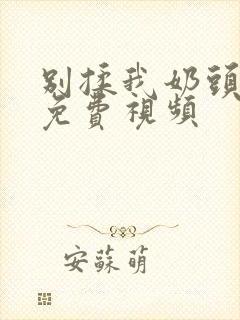 别揉我奶頭
免費視頻
安蘇萌